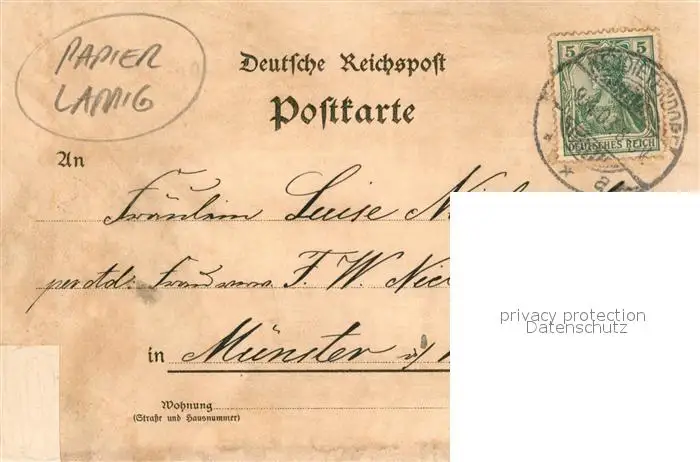 PAPIER
LAPPIG
Deutsche Reichspost
Postkarte
5 5
DEUTSCHES REICH
An
Fräulein Luise
F. W.
in Münster i/
Wohnung
(Straße und Hausnummer)
privacy protection
Datenschutz